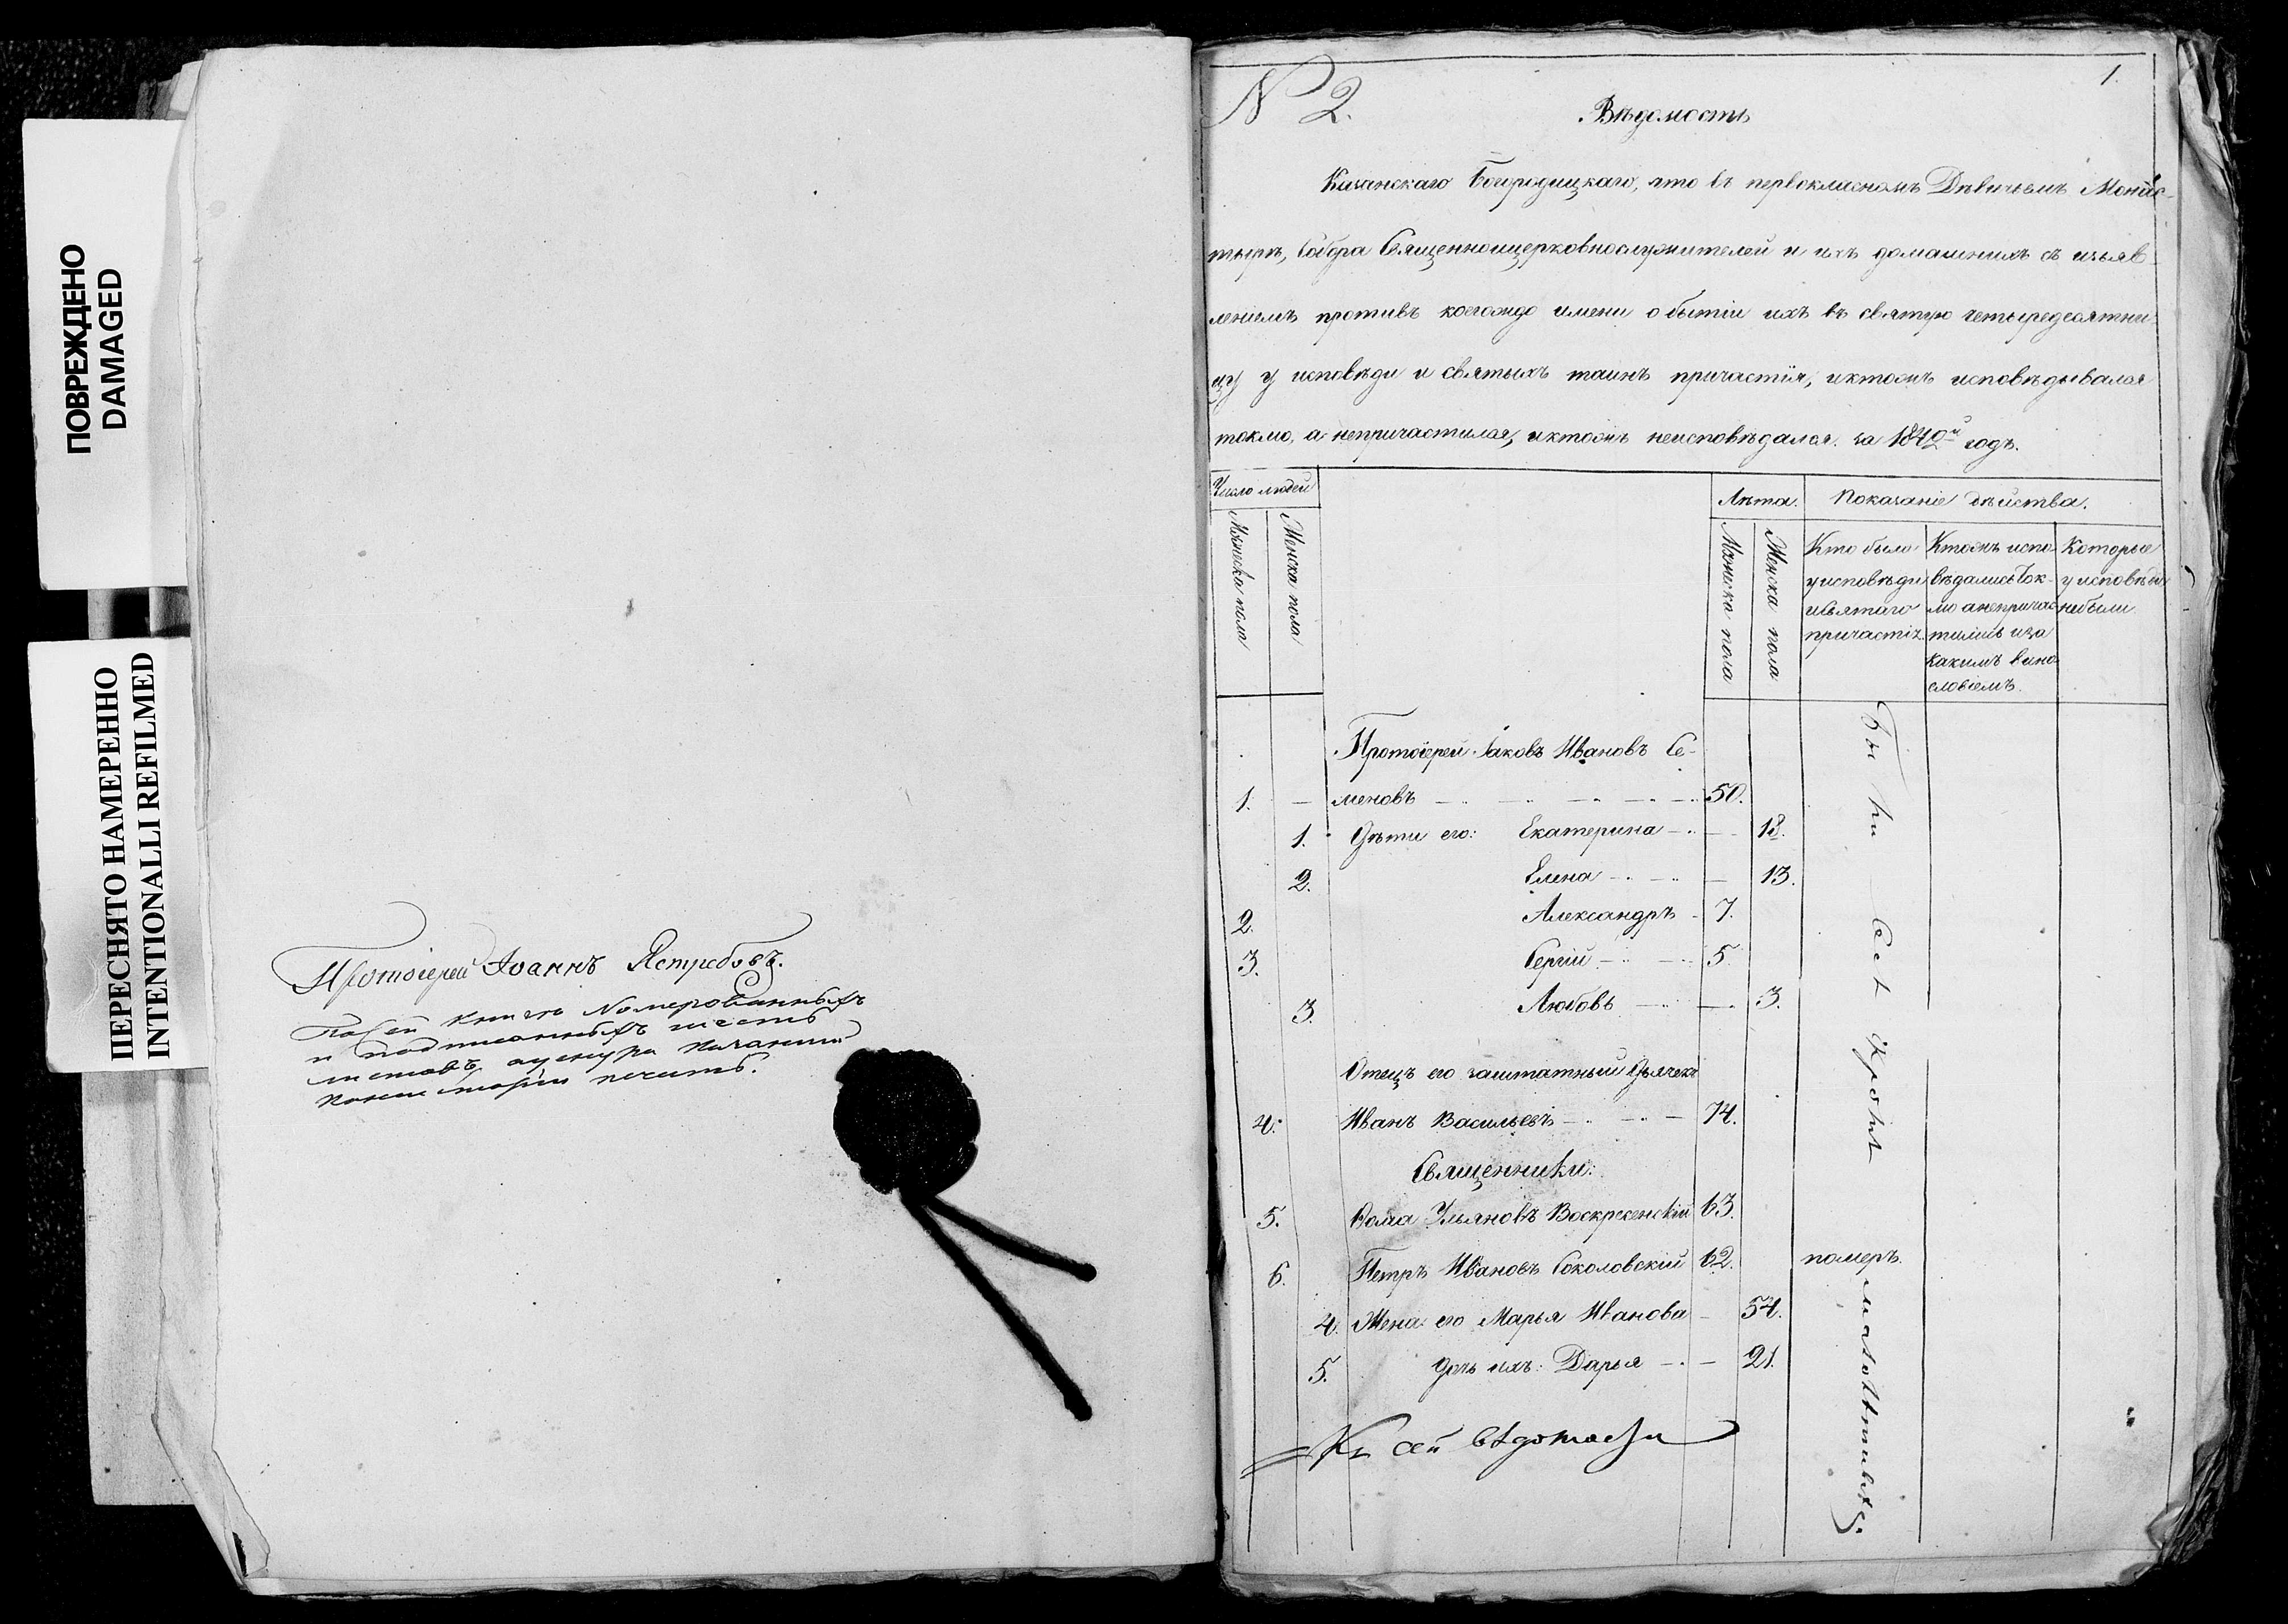 ПОВРЕЖДЕНО
DAMAGED
ПЕРЕСНЯТО НАМЕРЕННО
INTENTIONALLI REFILMED
Протоіерей Іоаннъ Ястребовъ.
По сей книгѣ Номерованныхъ
и подписанныхъ шесть
листовъ, а у снура Казанской
Консисторіи печать.
N 2.
1.
Вѣдомость
Казанскаго Богородицкаго, что въ первокласномъ Дѣвичьемъ Монас-
тырѣ, Собора Священноицерковнослужителей и ихъ домашнихъ съ изъяв-
леніемъ противъ коегождо имени о бытіи ихъ въ святую четыредесятни-
цу у исповѣди и святыхъ таинъ причастія, иктожъ исповѣдывался
токмо, а непричастился, иктожъ неисповѣдался. за 1842й годъ.
Число людей
Лѣта.
Показаніе дѣйства.
Мужеска пола
Женска пола
Мужеска пола
Женска пола
Кто были
у исповѣди
исвятаго
причастія.
Ктожъ испо-
вѣдались ток-
мо анепричас-
тились иза
какимъ вино-
словіемъ.
Которые
у исповѣди
небыли
Протоіерей Іаковъ Ивановъ Се-
1. — меновъ — 50.
1. Дѣти его: Екатерина — 18.
2. Елена — 13.
2. Александръ 7.
3. Сергій — 5.
3. Любовь — 3.
Отецъ его заштатный Дьячекъ
4. Иванъ Васильевъ — 74.
Священники:
5. Ѳома Ульяновъ Воскресенскій 63.
6. Петръ Ивановъ Соколовскій 62. померъ.
4. Жена его Марья Иванова — 54.
5. Дочь ихъ: Дарья — 21.
Были всѣ кромѣ малолѣтнихъ.
Къ сей вѣдомости